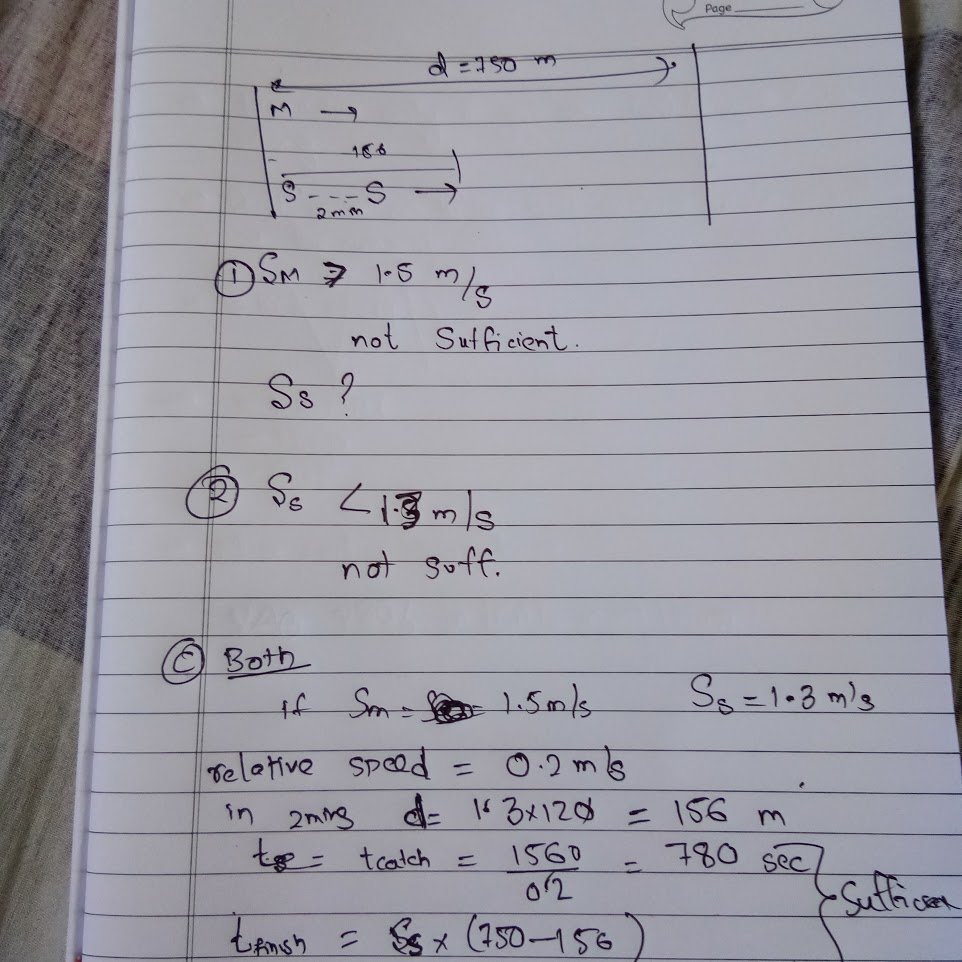 Page
d = 750 m
M →
156
S - - - S →
2 min
① SM > 1.5 m/s
not Sufficient.
Ss ?
② Ss < 1.3 m/s
not suff.
Ⓒ Both
if Sm = 1.5 m/s Ss = 1.3 m/s
relative speed = 0.2 m/s
in 2mins d = 1.3×120 = 156 m
= tcatch = 1560/02 = 780 sec
Sufficien
tfinish = Ss × (750-156)